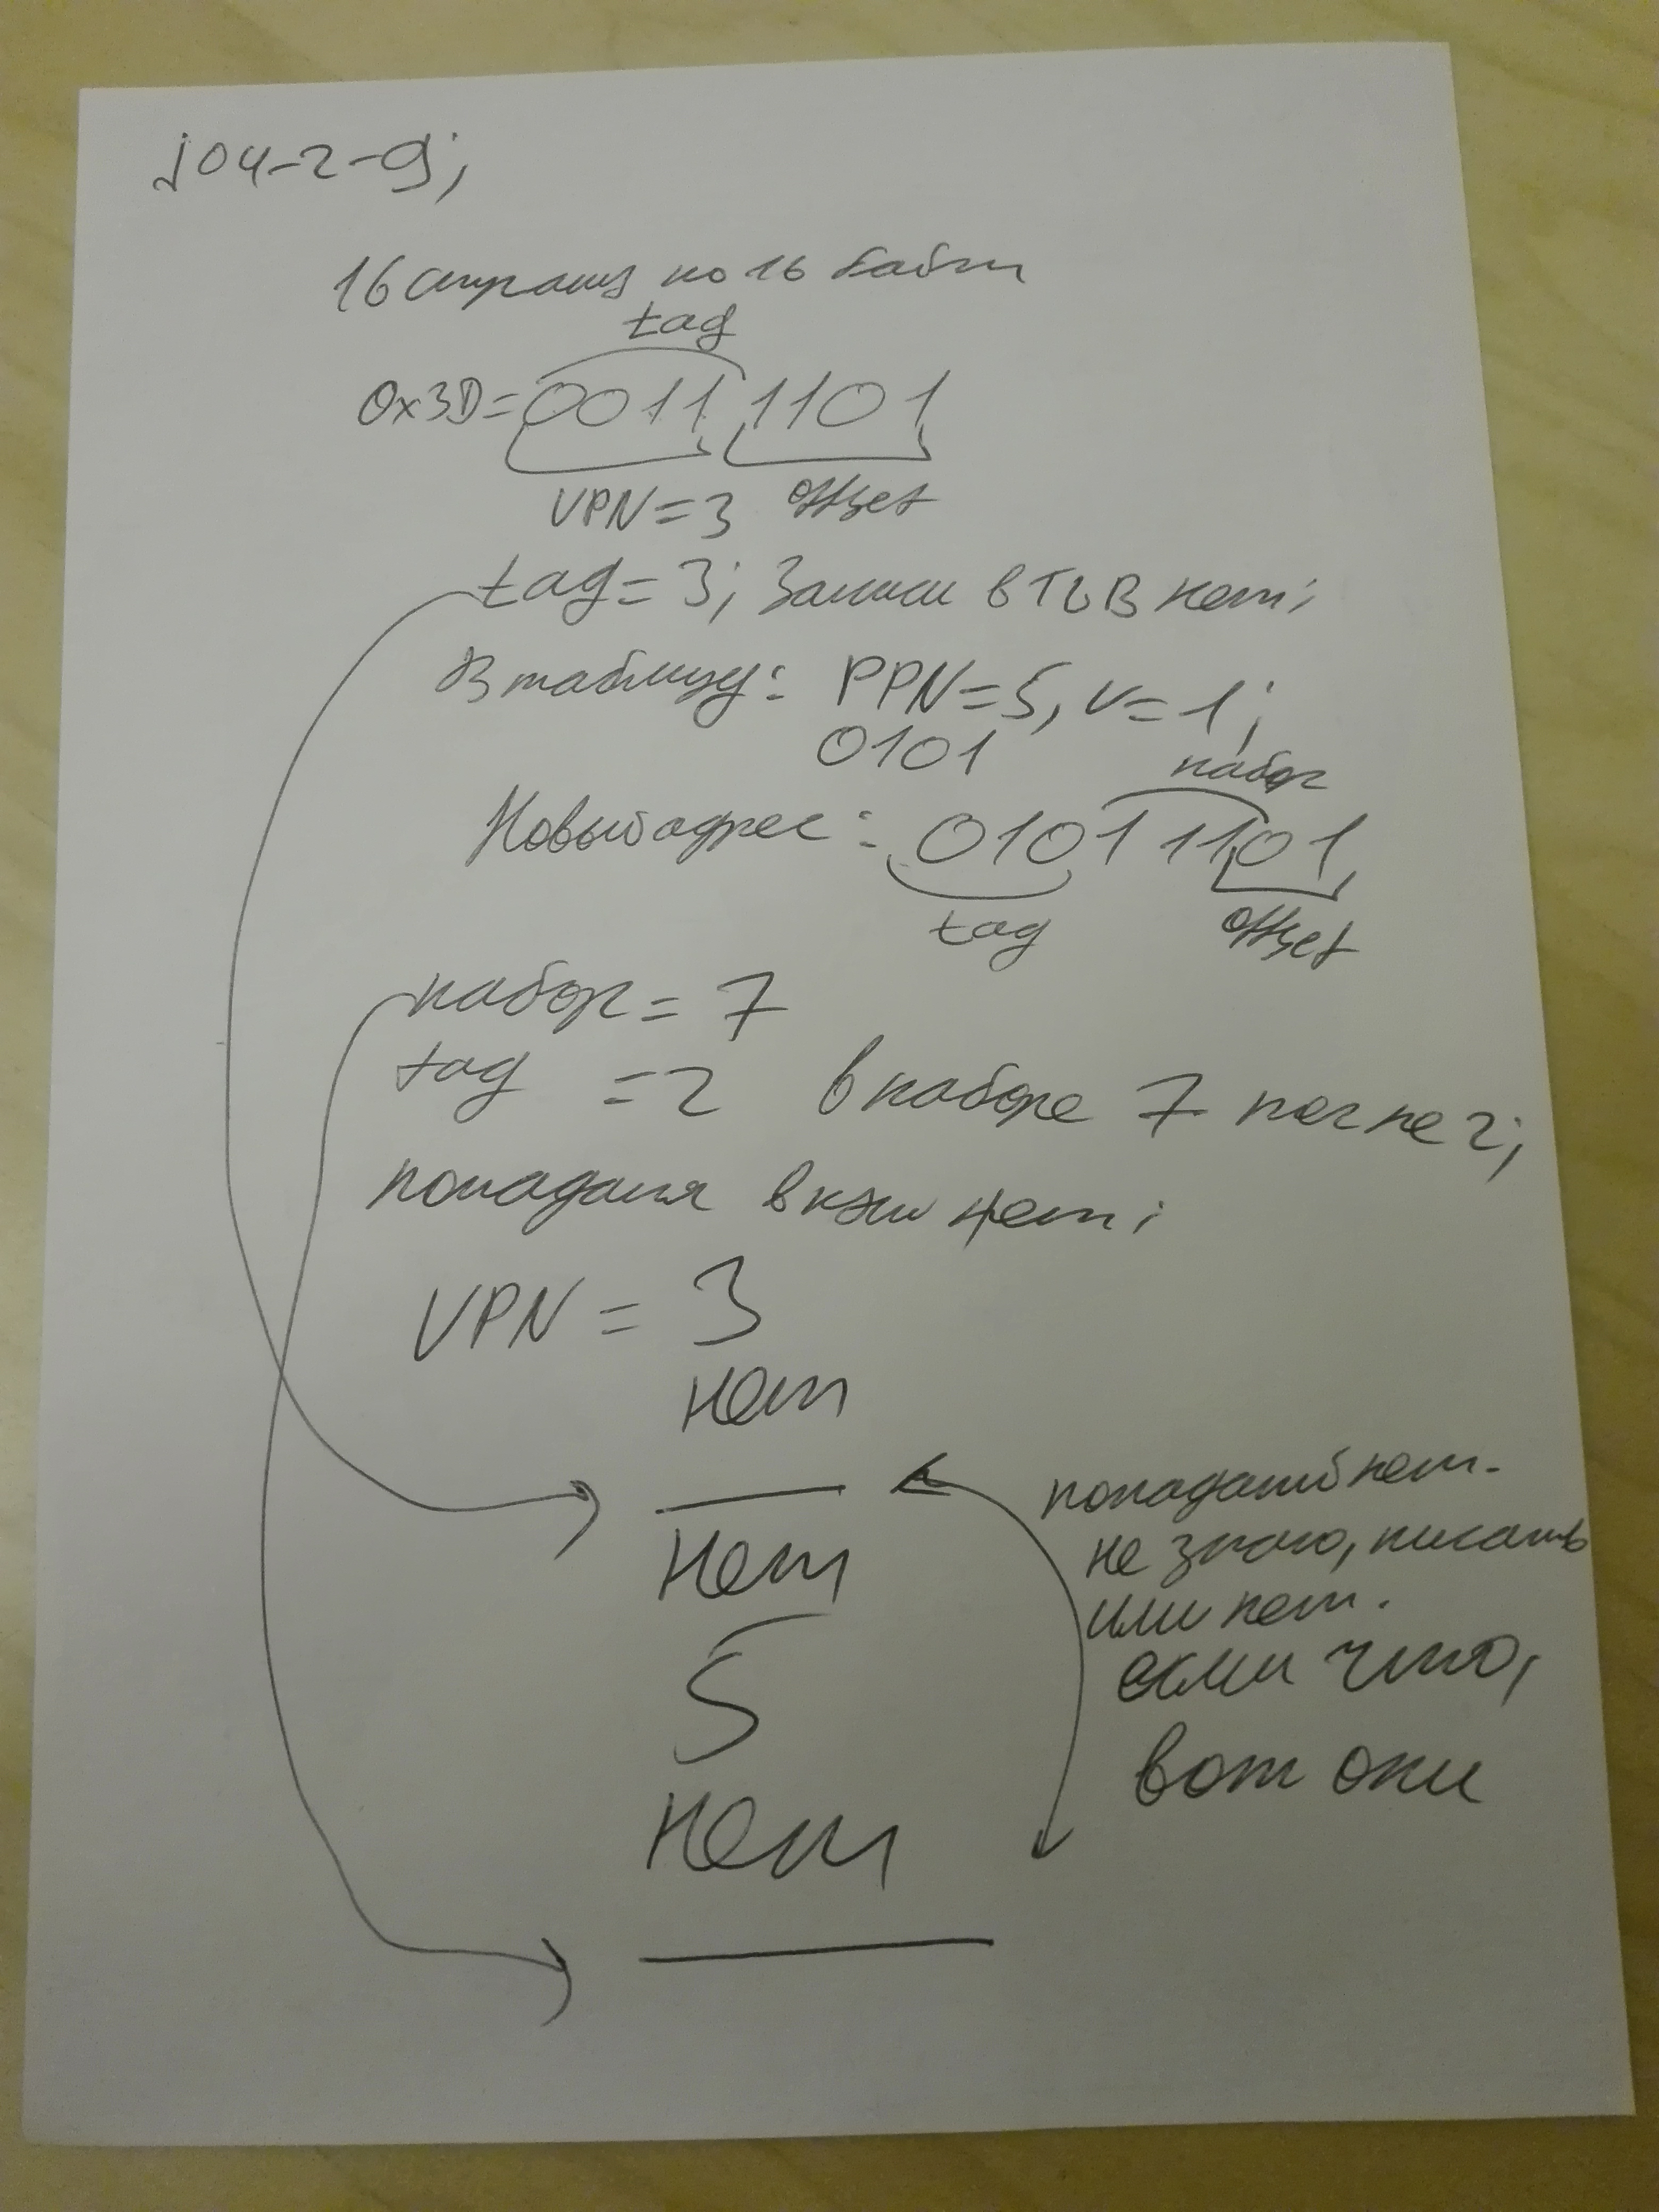 j04-2-9;
16 страниц по 16 байт
tag
0x3D=0011 1101
VPN=3 offset
tag=3; Записи в TLB нет;
В таблице: PPN=5, V=1;
0101
набор
Новый адрес: 01011101,
tag offset
набор = 7
tag =2 в наборе 7 тег не 2;
попадания в кэш нет;
VPN = 3
нет
попаданий нет.
не знаю, писать
или нет.
если что,
вот они
нет
5
нет